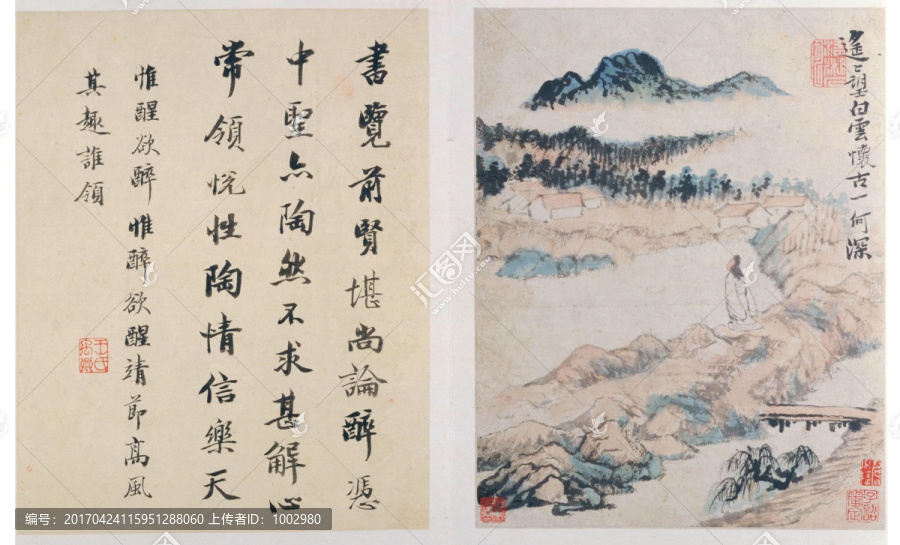 遙〻望白雲懷古一何深
書覽前賢堪尚論醉憑
中聖亦陶然不求甚解心
常領悅性陶情信樂天
惟醒欲醉惟醉欲醒靖節高風
其趣誰領
汇图网
编号：20170424115951288060 上传者ID：1002980